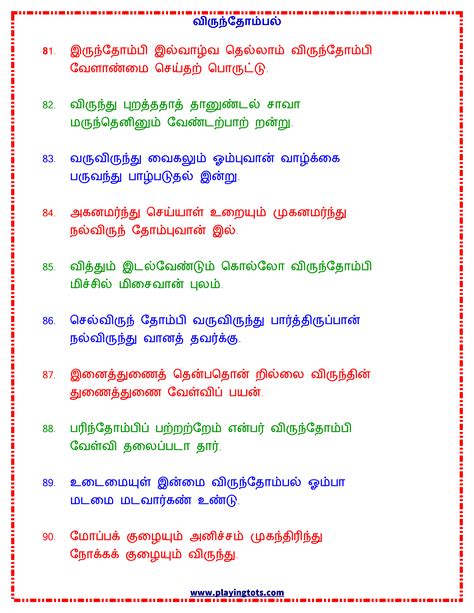 விருந்தோம்பல்
81. இருந்தோம்பி இல்வாழ்வ தெல்லாம் விருந்தோம்பி
வேளாண்மை செய்தற் பொருட்டு.
82. விருந்து புறத்ததாத் தானுண்டல் சாவா
மருந்தெனினும் வேண்டற்பாற் றன்று.
83. வருவிருந்து வைகலும் ஓம்புவான் வாழ்க்கை
பருவந்து பாழ்படுதல் இன்று.
84. அகனமர்ந்து செய்யாள் உறையும் முகனமர்ந்து
நல்விருந் தோம்புவான் இல்.
85. வித்தும் இடல்வேண்டும் கொல்லோ விருந்தோம்பி
மிச்சில் மிசைவான் புலம்.
86. செல்விருந் தோம்பி வருவிருந்து பார்த்திருப்பான்
நல்விருந்து வானத் தவர்க்கு.
87. இனைத்துணைத் தென்பதொன் றில்லை விருந்தின்
துணைத்துணை வேள்விப் பயன்.
88. பரிந்தோம்பிப் பற்றற்றேம் என்பர் விருந்தோம்பி
வேள்வி தலைப்படா தார்.
89. உடைமையுள் இன்மை விருந்தோம்பல் ஓம்பா
மடமை மடவார்கண் உண்டு.
90. மோப்பக் குழையும் அனிச்சம் முகந்திரிந்து
நோக்கக் குழையும் விருந்து.
www.playingtots.com